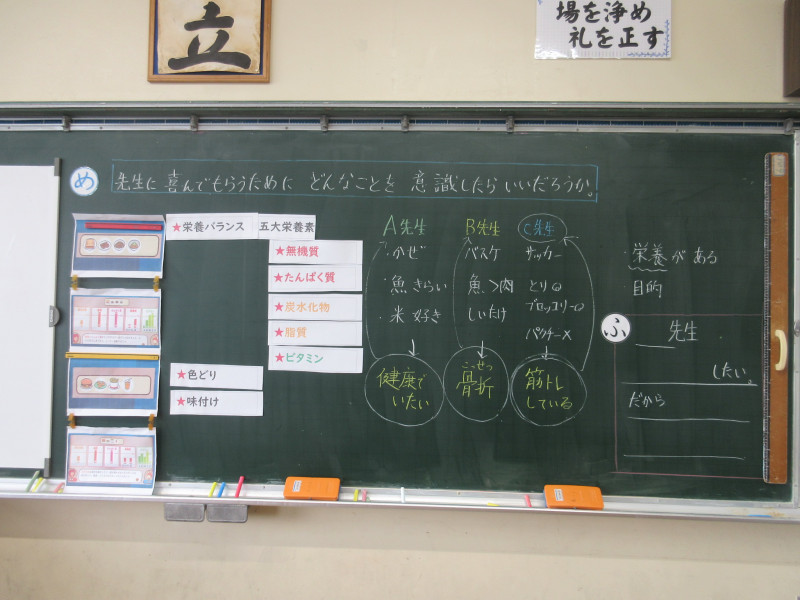 立
場を浄め
礼を正す
め
先生に喜んでもらうために どんなことを 意識したらいいだろうか。
★栄養バランス
五大栄養素
★無機質
★たんぱく質
★炭水化物
★脂質
★ビタミン
★色どり
★味付け
A先生
・かぜ
・魚きらい
・米 好き
健康で
いたい
B先生
バスケ
魚>肉
しいたけ
こっせつ
骨折
C先生
サッカー
とり
ブロッコリー
パクチー×
筋トレ
している
・栄養がある
・目的
ふ
先生
したい。
だから